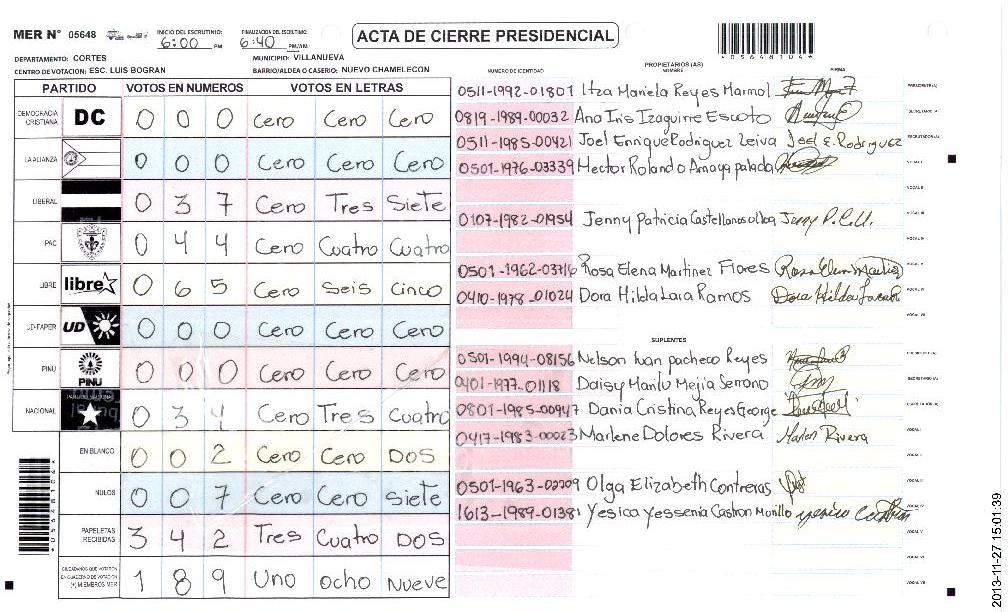 MER N° 05648
INICIO DEL ESCRUTINIO: 6:00 PM
FINALIZACION DEL ESCRUTINIO: 6:40 PM/AM
ACTA DE CIERRE PRESIDENCIAL
*05648104*
DEPARTAMENTO: CORTES
MUNICIPIO: VILLANUEVA
CENTRO DE VOTACION: ESC. LUIS BOGRAN
BARRIO/ALDEA O CASERIO: NUEVO CHAMELECON
PARTIDO VOTOS EN NUMEROS VOTOS EN LETRAS
DEMOCRACIA CRISTIANA DC 0 0 0 Cero Cero Cero
LA ALIANZA 0 0 0 Cero Cero Cero
LIBERAL 0 3 7 Cero Tres Siete
PAC 0 4 4 Cero Cuatro Cuatro
LIBRE libre 0 6 5 Cero Seis Cinco
UD-FAPER UD 0 0 0 Cero Cero Cero
PINU PINU 0 0 0 Cero Cero Cero
NACIONAL 0 3 4 Cero Tres Cuatro
EN BLANCO 0 0 2 Cero Cero DOS
NULOS 0 0 7 Cero Cero Siete
PAPELETAS RECIBIDAS 3 4 2 Tres Cuatro DOS
CIUDADANOS QUE VOTARON EN CUADERNO DE VOTACION (+) MIEMBROS MER 1 8 9 Uno ocho Nueve
*05648104*
PROPIETARIOS (AS)
NUMERO DE IDENTIDAD NOMBRE FIRMA
0511-1992-01801 Itza Mariela Reyes Marmol PRESIDENTE(A)
0819-1989-00032 Ana Iris Izaguirre Escoto SECRETARIO(A)
0511-1985-00421 Joel Enrique Rodriguez Leiva Joel E. Rodriguez ESCRUTADOR(A)
0501-1976-03339 Hector Rolando Amaya palada VOCAL I
VOCAL II
0107-1982-01954 Jenny Patricia Castellanos ulloa Jenny P.C.U. VOCAL III
VOCAL IV
0501-1962-03716 Rosa Elena Martinez Flores VOCAL V
0410-1978-01024 Dora Hilda Lara Ramos VOCAL VI
VOCAL VII
SUPLENTES
0501-1994-08156 Nelson Ivan pacheco Reyes PRESIDENTE(A)
0401-1977-01118 Daisy Marilu Mejia Serrano SECRETARIO(A)
0801-1985-00947 Dania Cristina Reyes George ESCRUTADOR(A)
0417-1983-00023 Marlene Dolores Rivera Marlen Rivera VOCAL I
VOCAL II
0501-1963-02209 Olga Elizabeth Contreras VOCAL III
1613-1989-01381 Yesica Yessenia Castron Morillo VOCAL IV
VOCAL V
VOCAL VI
VOCAL VII
2013-11-27 15:01:39